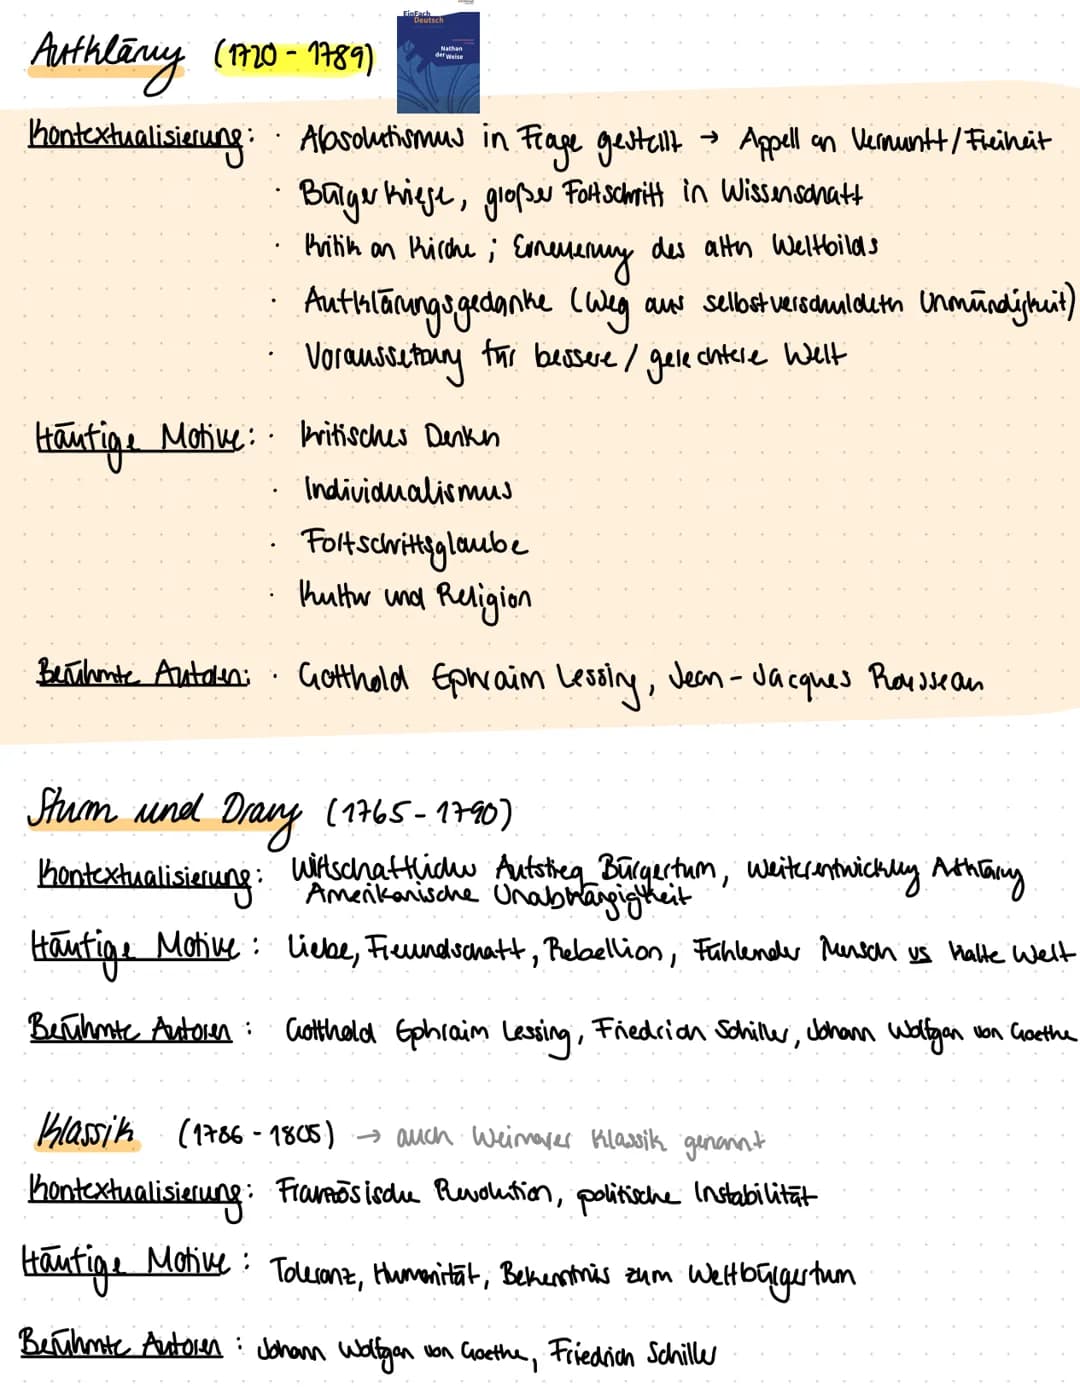 EinFach
Deutsch
Nathan
der Weise
Aufklärung (1720 - 1789)
Kontextualisierung: · Absolutismus in Frage gestellt → Appell an Vernunft/Freiheit
· Bürgerkriege, großer Fortschritt in Wissenschaft
· Kritik an Kirche; Erneuerung des alten Weltbilds
· Aufklärungsgedanke (Weg aus selbstverschuldeten Unmündigkeit)
· Voraussetzung für bessere / gerechtere Welt
Häufige Motive: · kritisches Denken
· Individualismus
· Fortschrittsglaube
· Kultur und Religion
Berühmte Autoren: · Gotthold Ephraim Lessing, Jean-Jacques Rousseau
Sturm und Drang (1765 - 1790)
Kontextualisierung: Wirtschaftlicher Aufstieg Bürgertum, Weiterentwicklung
Amerikanische Unabhängigkeit
Häufige Motive: Liebe, Freundschaft, Rebellion, Fühlender Mensch vs kalte Welt
Berühmte Autoren: Gotthold Ephraim Lessing, Friedrich Schiller, Johann Wolfgan von Goethe
Klassik (1786 - 1805) → auch Weimarer Klassik genannt
Kontextualisierung: Französische Revolution, politische Instabilität
Häufige Motive: Toleranz, Humanität, Bekenntnis zum Weltbürgertum
Berühmte Autoren: Johann Wolfgan von Goethe, Friedrich Schiller